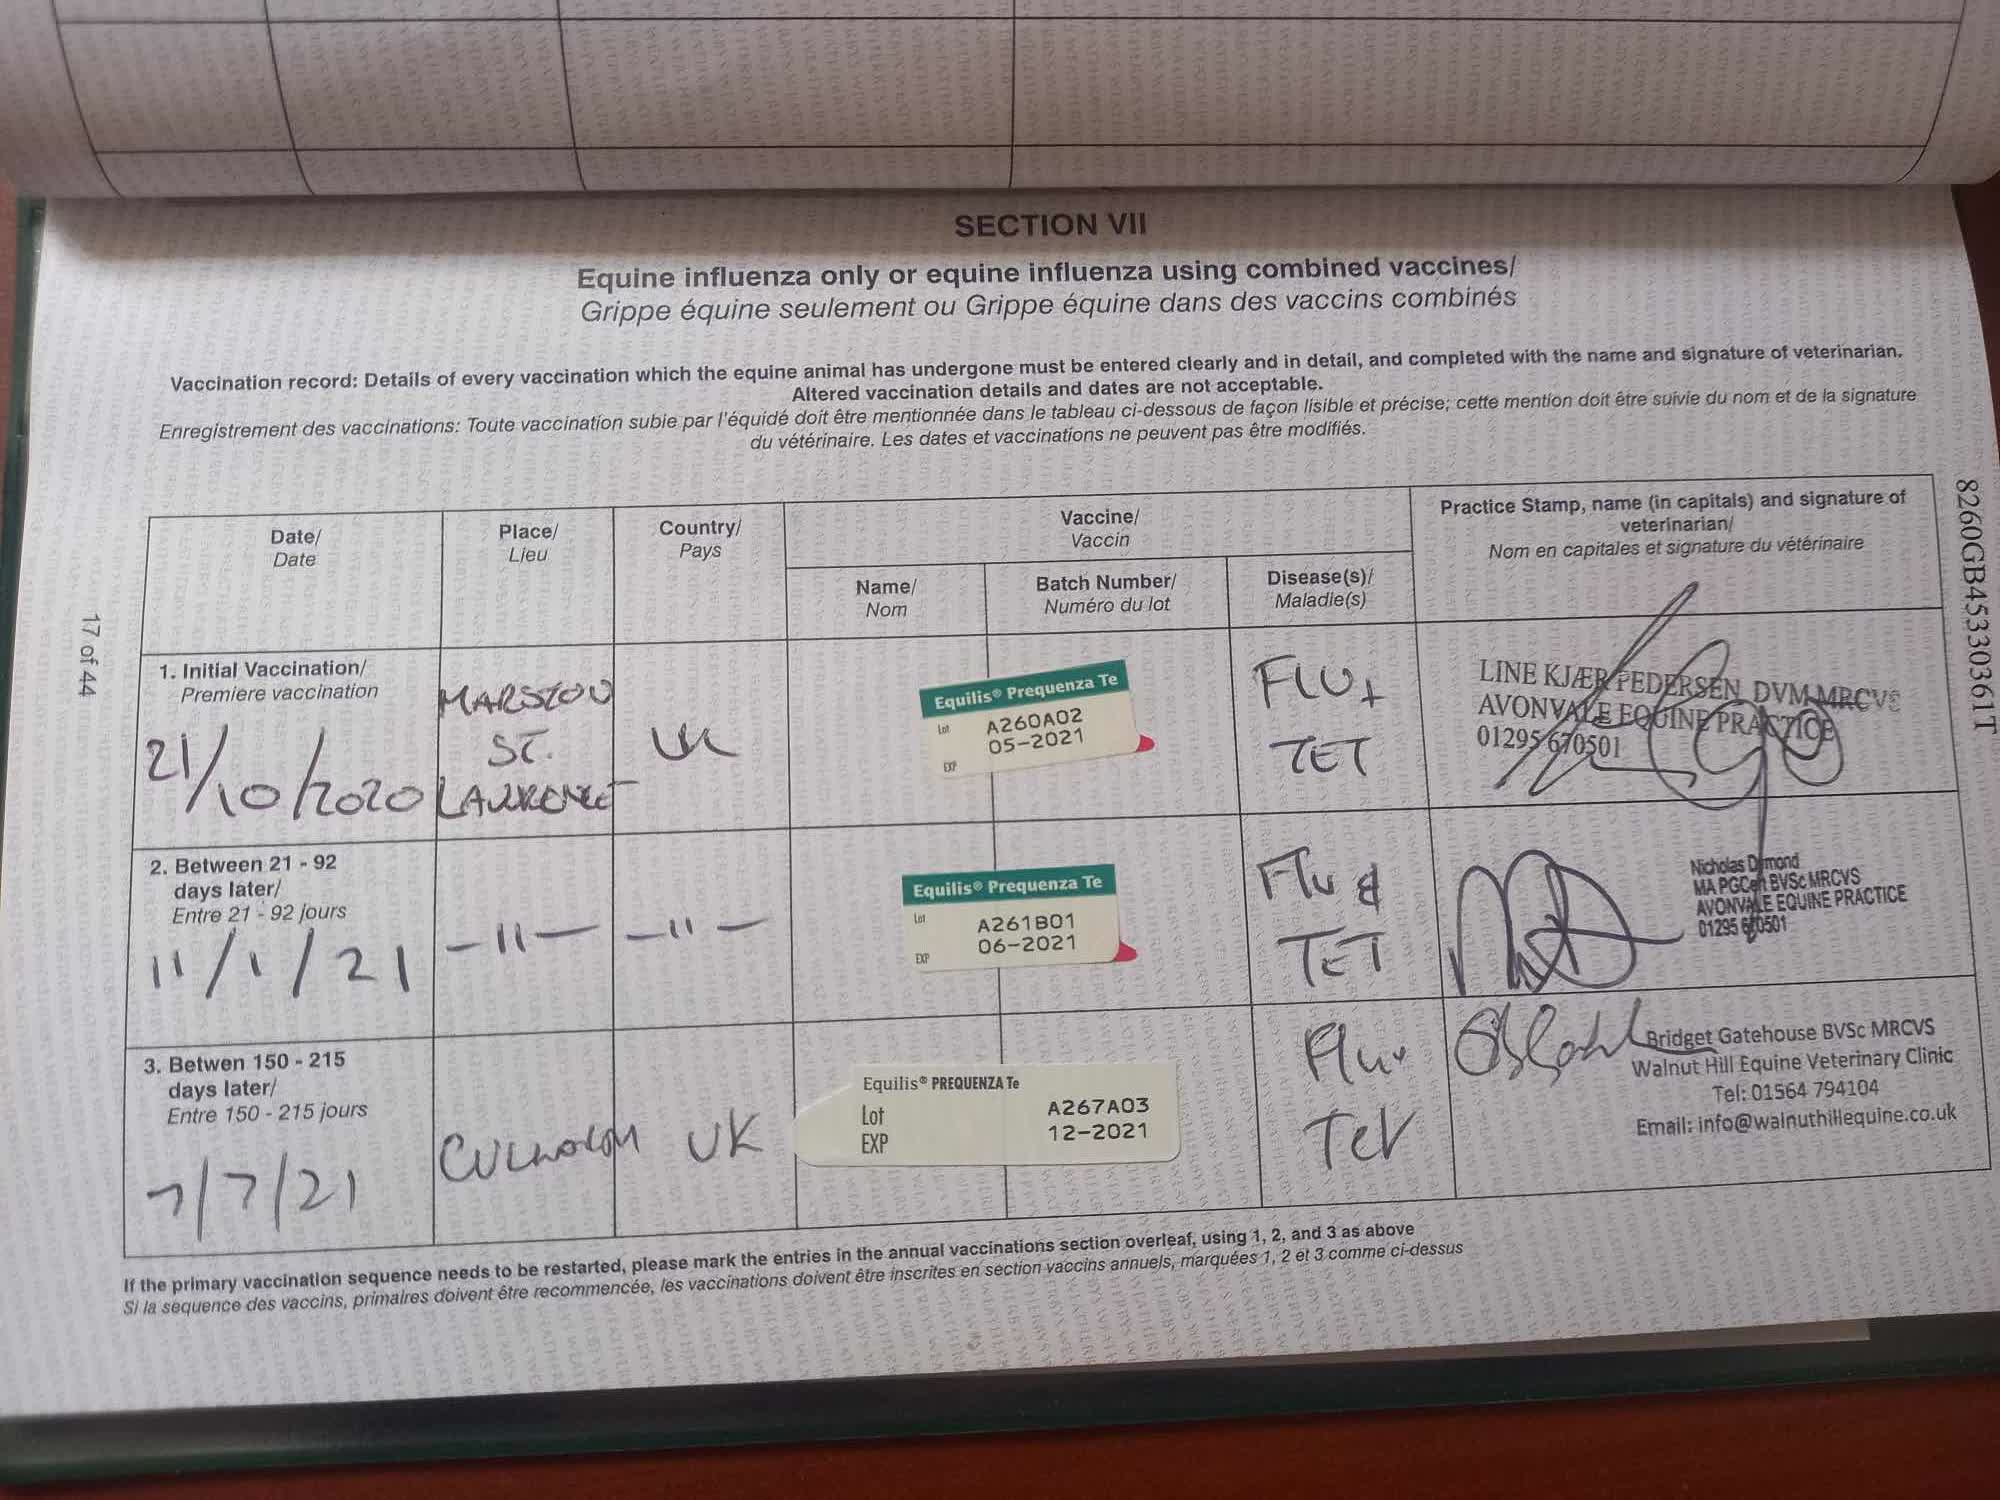 SECTION VII
Equine influenza only or equine influenza using combined vaccines/
Grippe équine seulement ou Grippe équine dans des vaccins combinés
Vaccination record: Details of every vaccination which the equine animal has undergone must be entered clearly and in detail, and completed with the name and signature of veterinarian.
Altered vaccination details and dates are not acceptable.
Enregistrement des vaccinations: Toute vaccination subie par l'équidé doit être mentionnée dans le tableau ci-dessous de façon lisible et précise; cette mention doit être suivie du nom et de la signature
du vétérinaire. Les dates et vaccinations ne peuvent pas être modifiés.
Date/
Date
Place/
Lieu
Country/
Pays
Vaccine/
Vaccin
Name/
Nom
Batch Number/
Numéro du lot
Disease(s)/
Maladie(s)
Practice Stamp, name (in capitals) and signature of
veterinarian/
Nom en capitales et signature du vétérinaire
1. Initial Vaccination/
Premiere vaccination
21/10/2020
MARSTON
ST.
LAWRENCE
UK
Equilis® Prequenza Te
Lot A260A02
05-2021
EXP
FLU +
TET
LINE KJÆR PEDERSEN DVM MRCVS
AVONVALE EQUINE PRACTICE
01295 670501
2. Between 21 - 92
days later/
Entre 21 - 92 jours
11/1/21
-11-
-11-
Equilis® Prequenza Te
Lot A261B01
06-2021
EXP
Flu &
TET
Nicholas Dimond
MA PGCert BVSc MRCVS
AVONVALE EQUINE PRACTICE
01295 670501
3. Betwen 150 - 215
days later/
Entre 150 - 215 jours
7/7/21
UK
Equilis® PREQUENZA Te
Lot A267A03
EXP 12-2021
Flu +
Tet
Bridget Gatehouse BVSc MRCVS
Walnut Hill Equine Veterinary Clinic
Tel: 01564 794104
Email: info@walnuthillequine.co.uk
If the primary vaccination sequence needs to be restarted, please mark the entries in the annual vaccinations section overleaf, using 1, 2, and 3 as above
Si la sequence des vaccins, primaires doivent être recommencée, les vaccinations doivent être inscrites en section vaccins annuels, marquées 1, 2 et 3 comme ci-dessus
17 of 44
8260GB45330361T